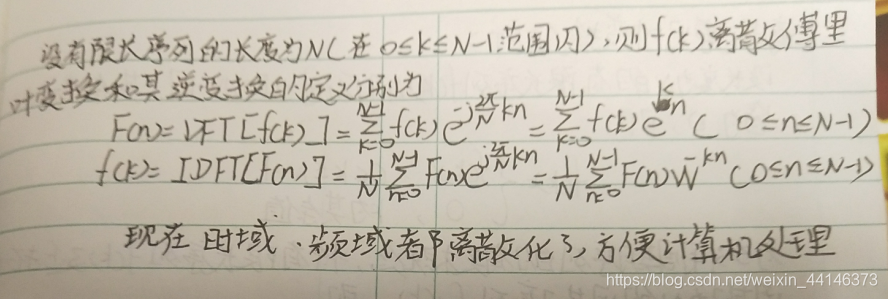 设有限长序列的长度为N(在0≤k≤N-1范围内),则f(k)离散傅里
叶变换和其逆变换的定义分别为
F(n)=DFT[f(k)]=∑_{k=0}^{N-1} f(k) e^{-j\frac{2π}{N}kn}=∑_{k=0}^{N-1} f(k) e^{kn} ( 0≤n≤N-1)
f(k)=IDFT[F(n)]=\frac{1}{N}∑_{n=0}^{N-1} F(n)e^{j\frac{2π}{N}kn}=\frac{1}{N}∑_{n=0}^{N-1} F(n)W^{-kn} (0≤n≤N-1)
现在时域、频域都离散化了,方便计算机处理
https://blog.csdn.net/weixin_44146373